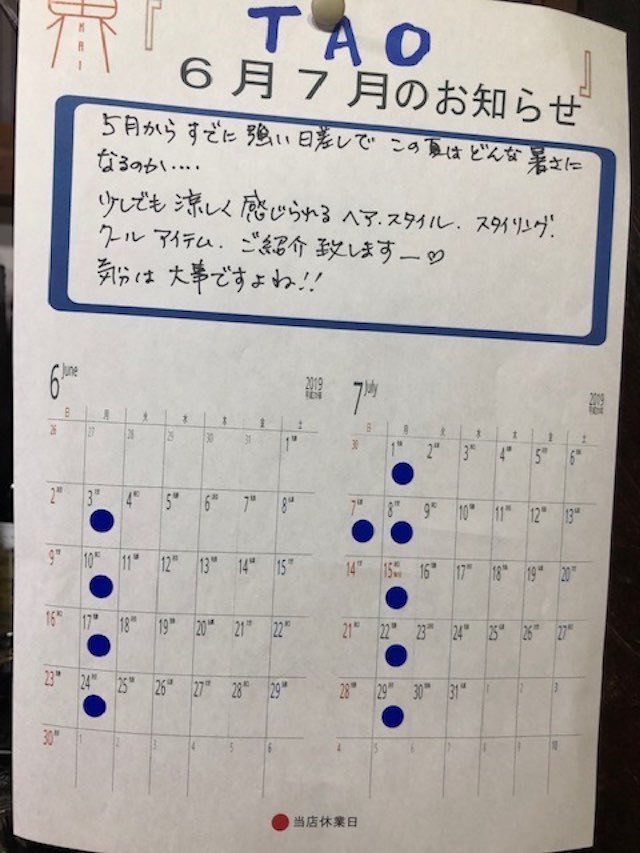 東
KAI
『 TAO 』
6月7月のお知らせ
5月から すでに 強い日差しで この夏は どんな 暑さに
なるのか‥‥
少しでも 涼しく 感じられる ヘア.スタイル. スタイリング.
クール アイテム. ご紹介 致します—♡
気分は 大事ですよね!!
6 June 2019
日 月 火 水 木 金 土
26 27 28 29 30 31 1
2 3 4 5 6 7 8
9 10 11 12 13 14 15
16 17 18 19 20 21 22
23 24 25 26 27 28 29
30 1 2 3 4 5 6
7 July 2019
日 月 火 水 木 金 土
30 1 2 3 4 5 6
7 8 9 10 11 12 13
14 15 16 17 18 19 20
21 22 23 24 25 26 27
28 29 30 31 1 2 3
4 5 6 7 8 9 10
当店休業日